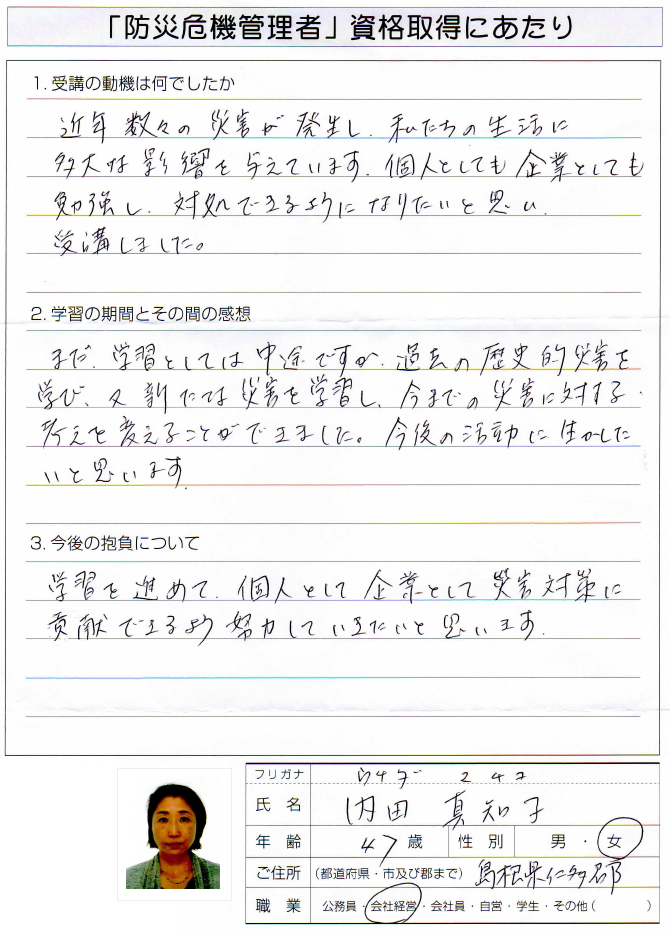 「防災危機管理者」資格取得にあたり
1. 受講の動機は何でしたか
近年 数々の 災害が 発生し、私たちの生活に
多大な影響を与えています。個人としても企業としても
勉強し、対処できるようになりたいと思い、
受講しました。
2. 学習の期間とその間の感想
まだ、学習としては中途ですが、過去の歴史的災害を
学び、又新たな災害を学習し、今までの災害に対する
考えを変えることができました。今後の活動に生かした
いと思います。
3. 今後の抱負について
学習を進めて、個人として企業として災害対策に
貢献できるよう努力していきたいと思います。
フリガナ ウチダ マチコ
氏 名 内田 真知子
年 齢 47歳 性 別 男 ・ 女
ご住所 (都道府県・市及び郡まで) 島根県仁多郡
職 業 公務員・会社経営・会社員・自営・学生・その他( )